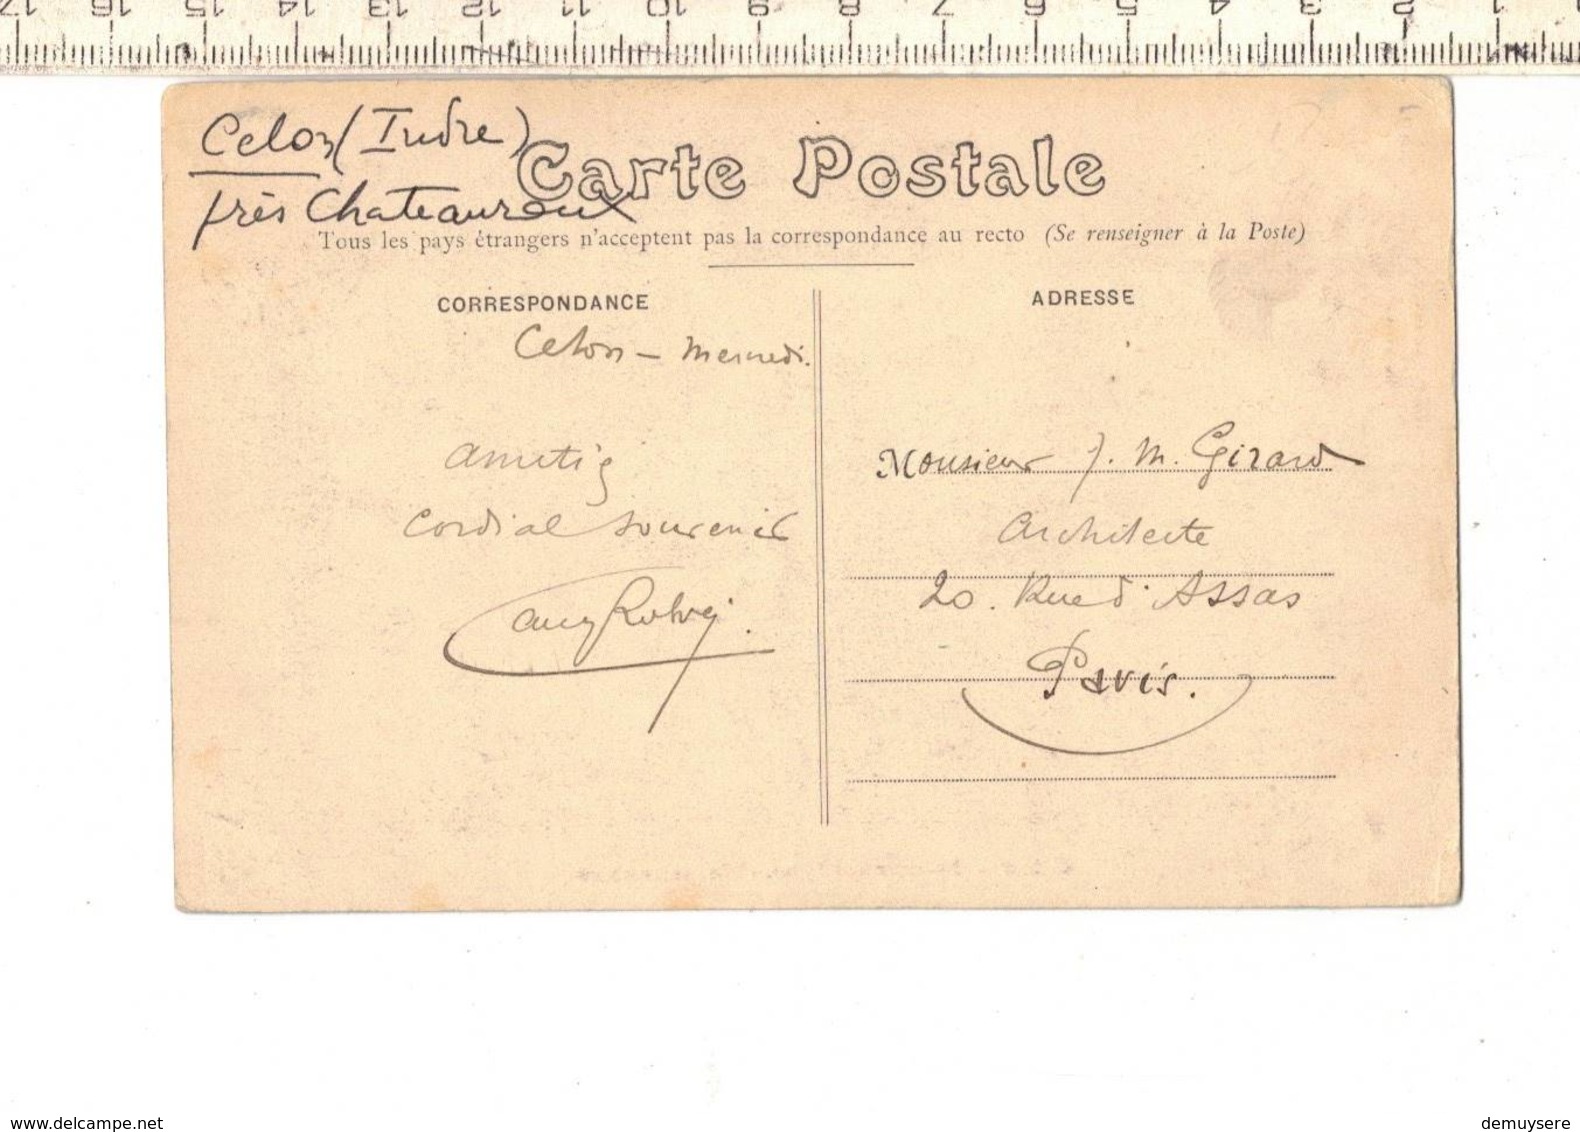 17 16 15 14 13 12 11 10 9 8 7 6 5 4 3 2 1
Celon (Indre)
près Chateauroux
Carte Postale
Tous les pays étrangers n'acceptent pas la correspondance au recto (Se renseigner à la Poste)
CORRESPONDANCE
Celon – Mercredi.
amitiés
Cordial souvenir
ADRESSE
Monsieur J. M. Girard
Architecte
20. Rue d'Assas
Paris.
www.delcampe.net
demuysere